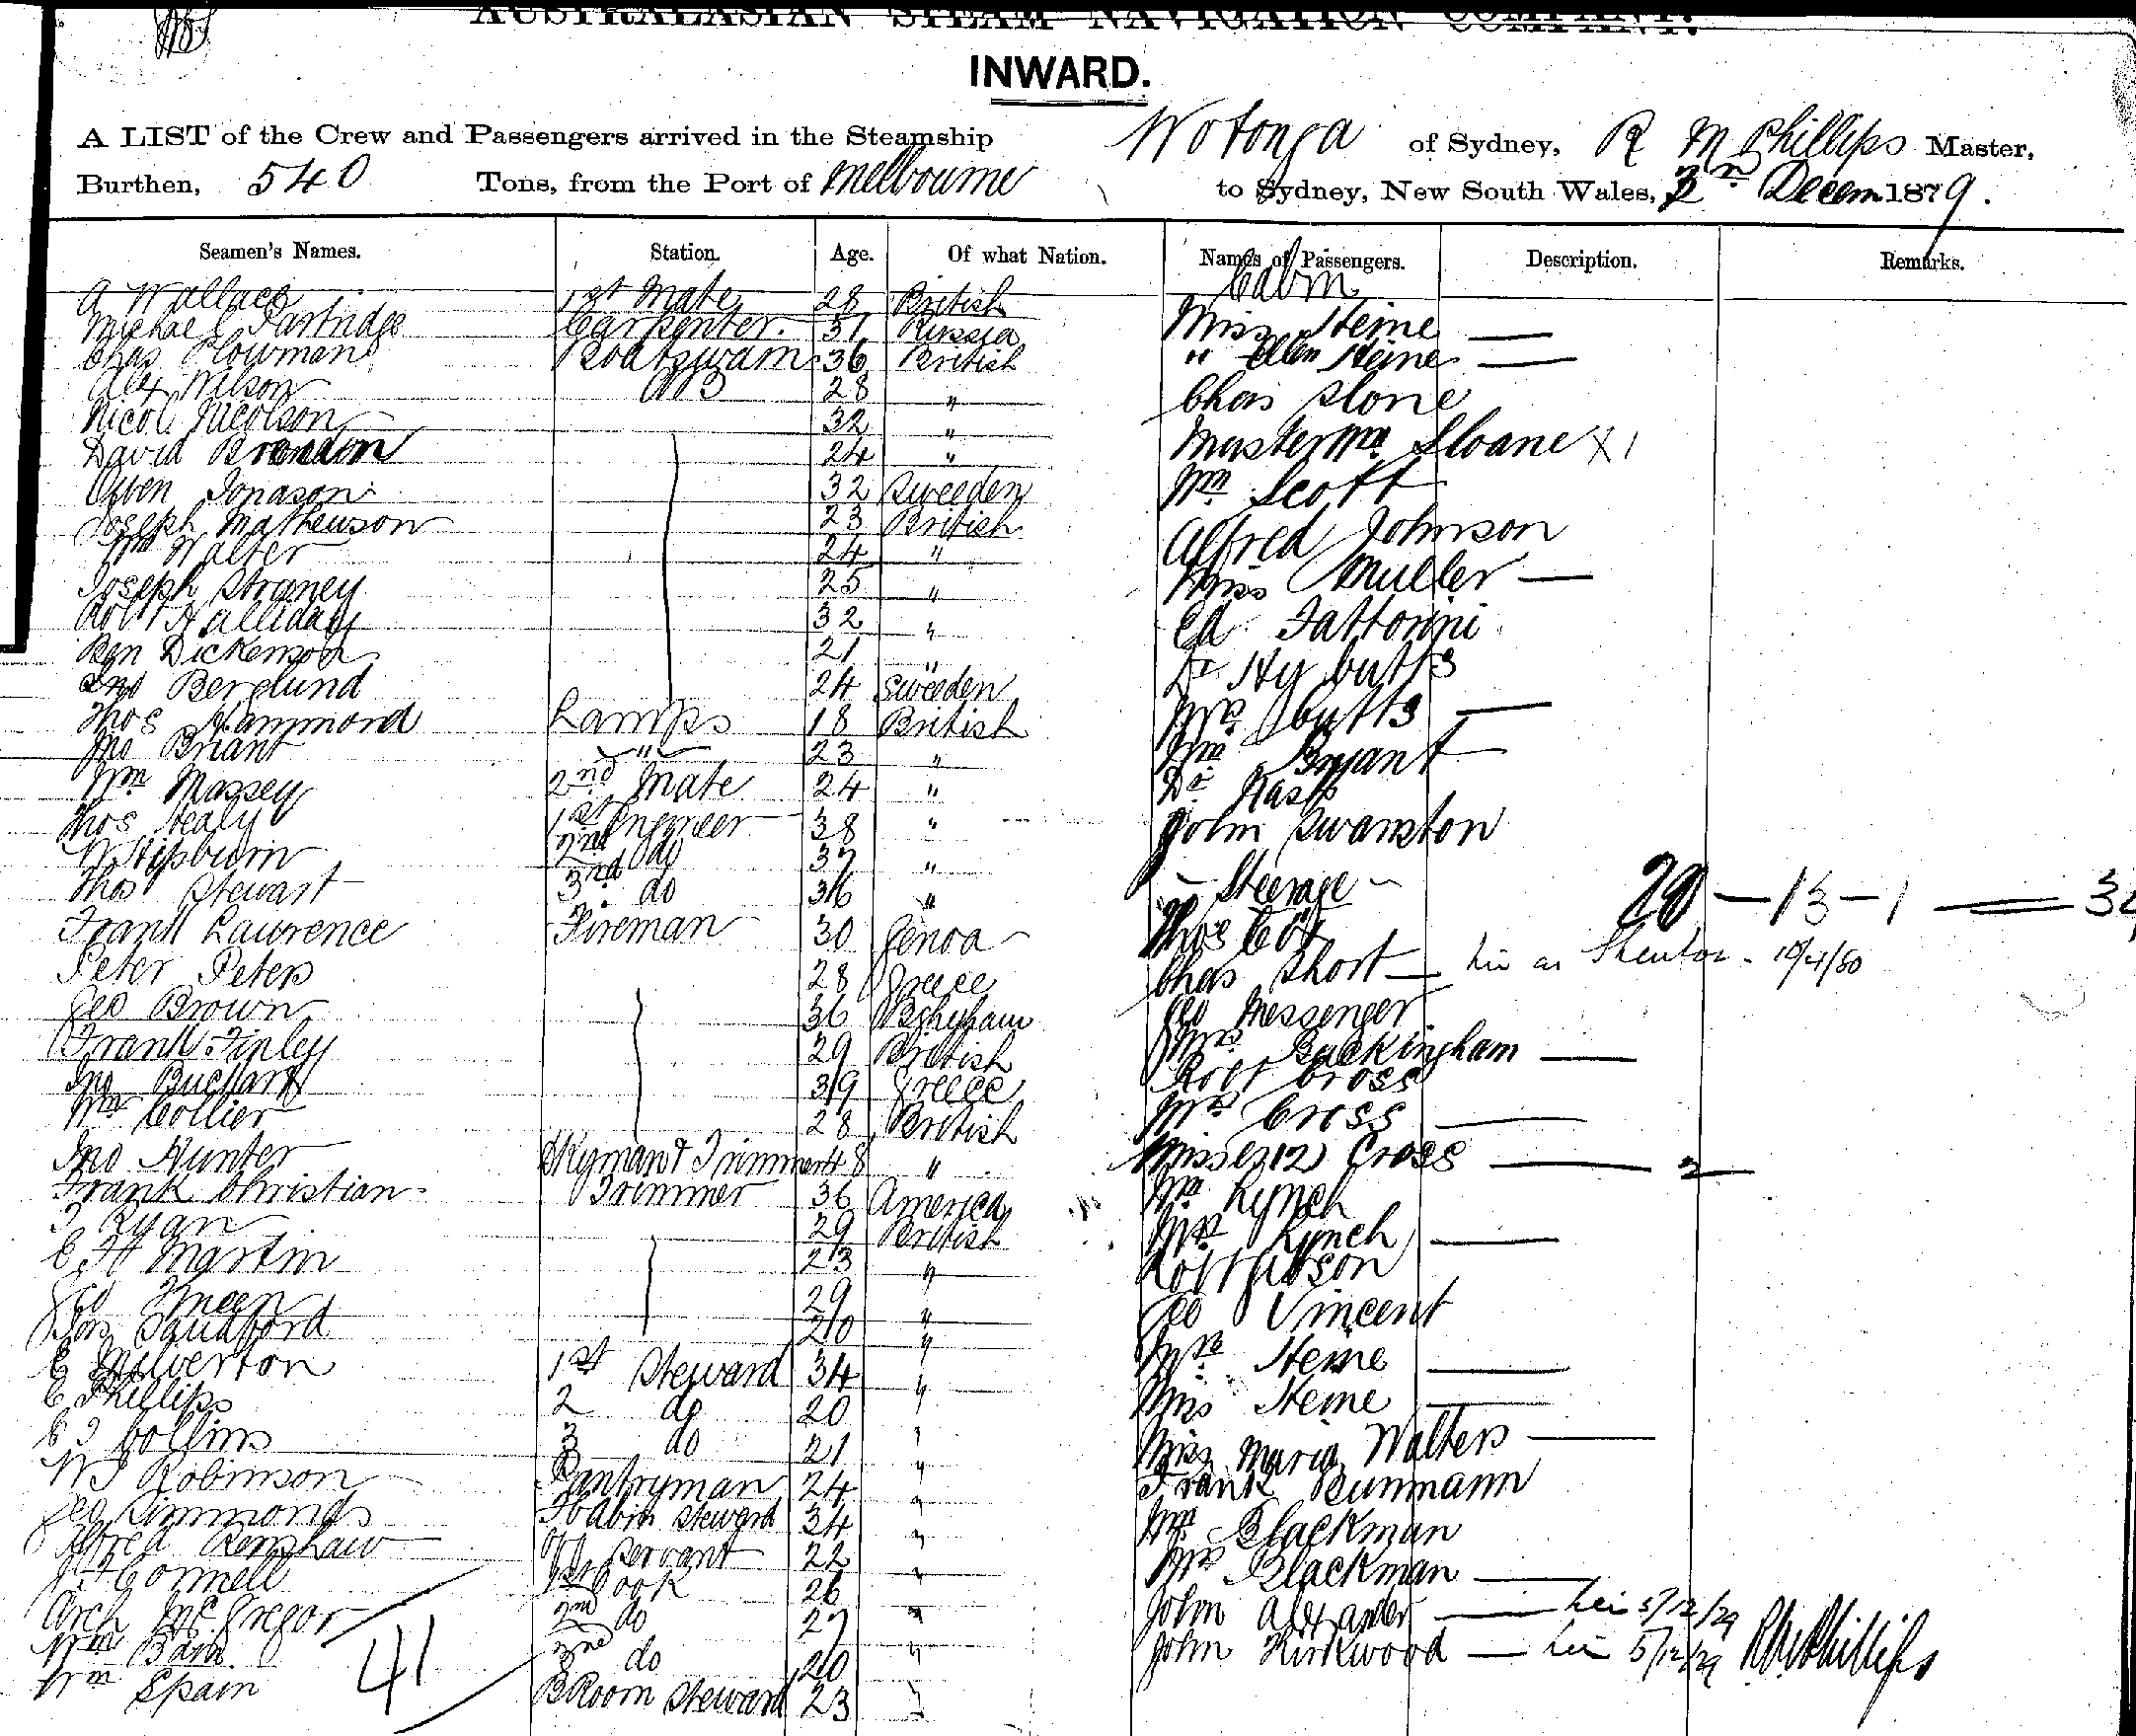 AUSTRALASIAN STEAM NAVIGATION COMPANY.
INWARD.
A LIST of the Crew and Passengers arrived in the Steamship Wotonga of Sydney, R M Phillips Master,
Burthen, 540 Tons, from the Port of Melbourne to Sydney, New South Wales, Decem 1879.
Seamen's Names. Station. Age. Of what Nation. Names of Passengers. Description. Remarks.
Cabin
A Wallace 1st Mate 28 British
Michael Partridge Carpenter 51 Russia Miss Heine —
Chas Plowman Boatswain 36 British " Ellen Heine —
Alex Wilson AB 28 " Chas Slone
Nicol Nicolson 32 " Master Wm Sloane X 1
David 24 " Wm Scott
Jonason 32 Sweeden Alfred Johnson
Joseph Mathewson 23 British Miss Muller —
Wm Walter 24 " Ed Fattorini
Joseph Straney 25 " Dr Hy Butts
Robt Halliday 32 " Mrs Butts —
Ben Dickenson 21 " Wm Bryant
Jno Berglund 24 Sweeden Dr
Thos Hammond Lamps 18 British John Swanston
Jno Briant " 23 "
Wm Massey 2nd Mate 24 "
Thos Healy 1st Engineer 38 "
W Hepburn 2nd do 37 "
Thos Stewart 3rd do 36 " Steerage 20 — 13 — 1
Frank Lawrence Fireman 30 Genoa Thos Cox
Peter Peters 28 Greece Chas Short —
Geo Brown 36 Geo Messenger
Frank Finley 29 British Mrs Buckingham —
Jno 39 Greece Robt Cross
Wm Collier 28 British Mrs Cross —
Jno Hunter Dkyman & Trimmer 48 " Misses (2) Cross — 2 —
Frank Christian Trimmer 36 America Wm Lynch
T Ryan 29 British Mrs Lynch —
C H Martin 23 " Robt Gibson
Geo 29 " Geo Vincent
Sandford 20 " Mrs Heine —
E Milverton 1st Steward 34 " Miss Heine —
C Phillips 2 do 20 " Miss Maria Walters —
C J Collins 3 do 21 " Frank Bunmann
W J Robinson Pantryman 24 " Wm Blackman
Geo Simmonds F Cabin Steward 34 " Mrs Blackman —
Alfred Renshaw Servant 22 " John Alexander — 5/12/79
Connell 1st Cook 26 " John Kirkwood — 5/12/79
Arch McGregor 2nd do 27 "
Wm 3rd do 20 "
Wm Spain B Room Steward 23 "
41
R M Phillips